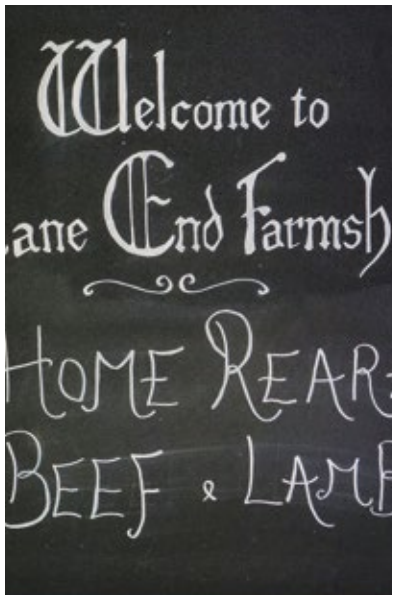 Welcome to
ane End Farmsh
HOME REAR
BEEF & LAMB